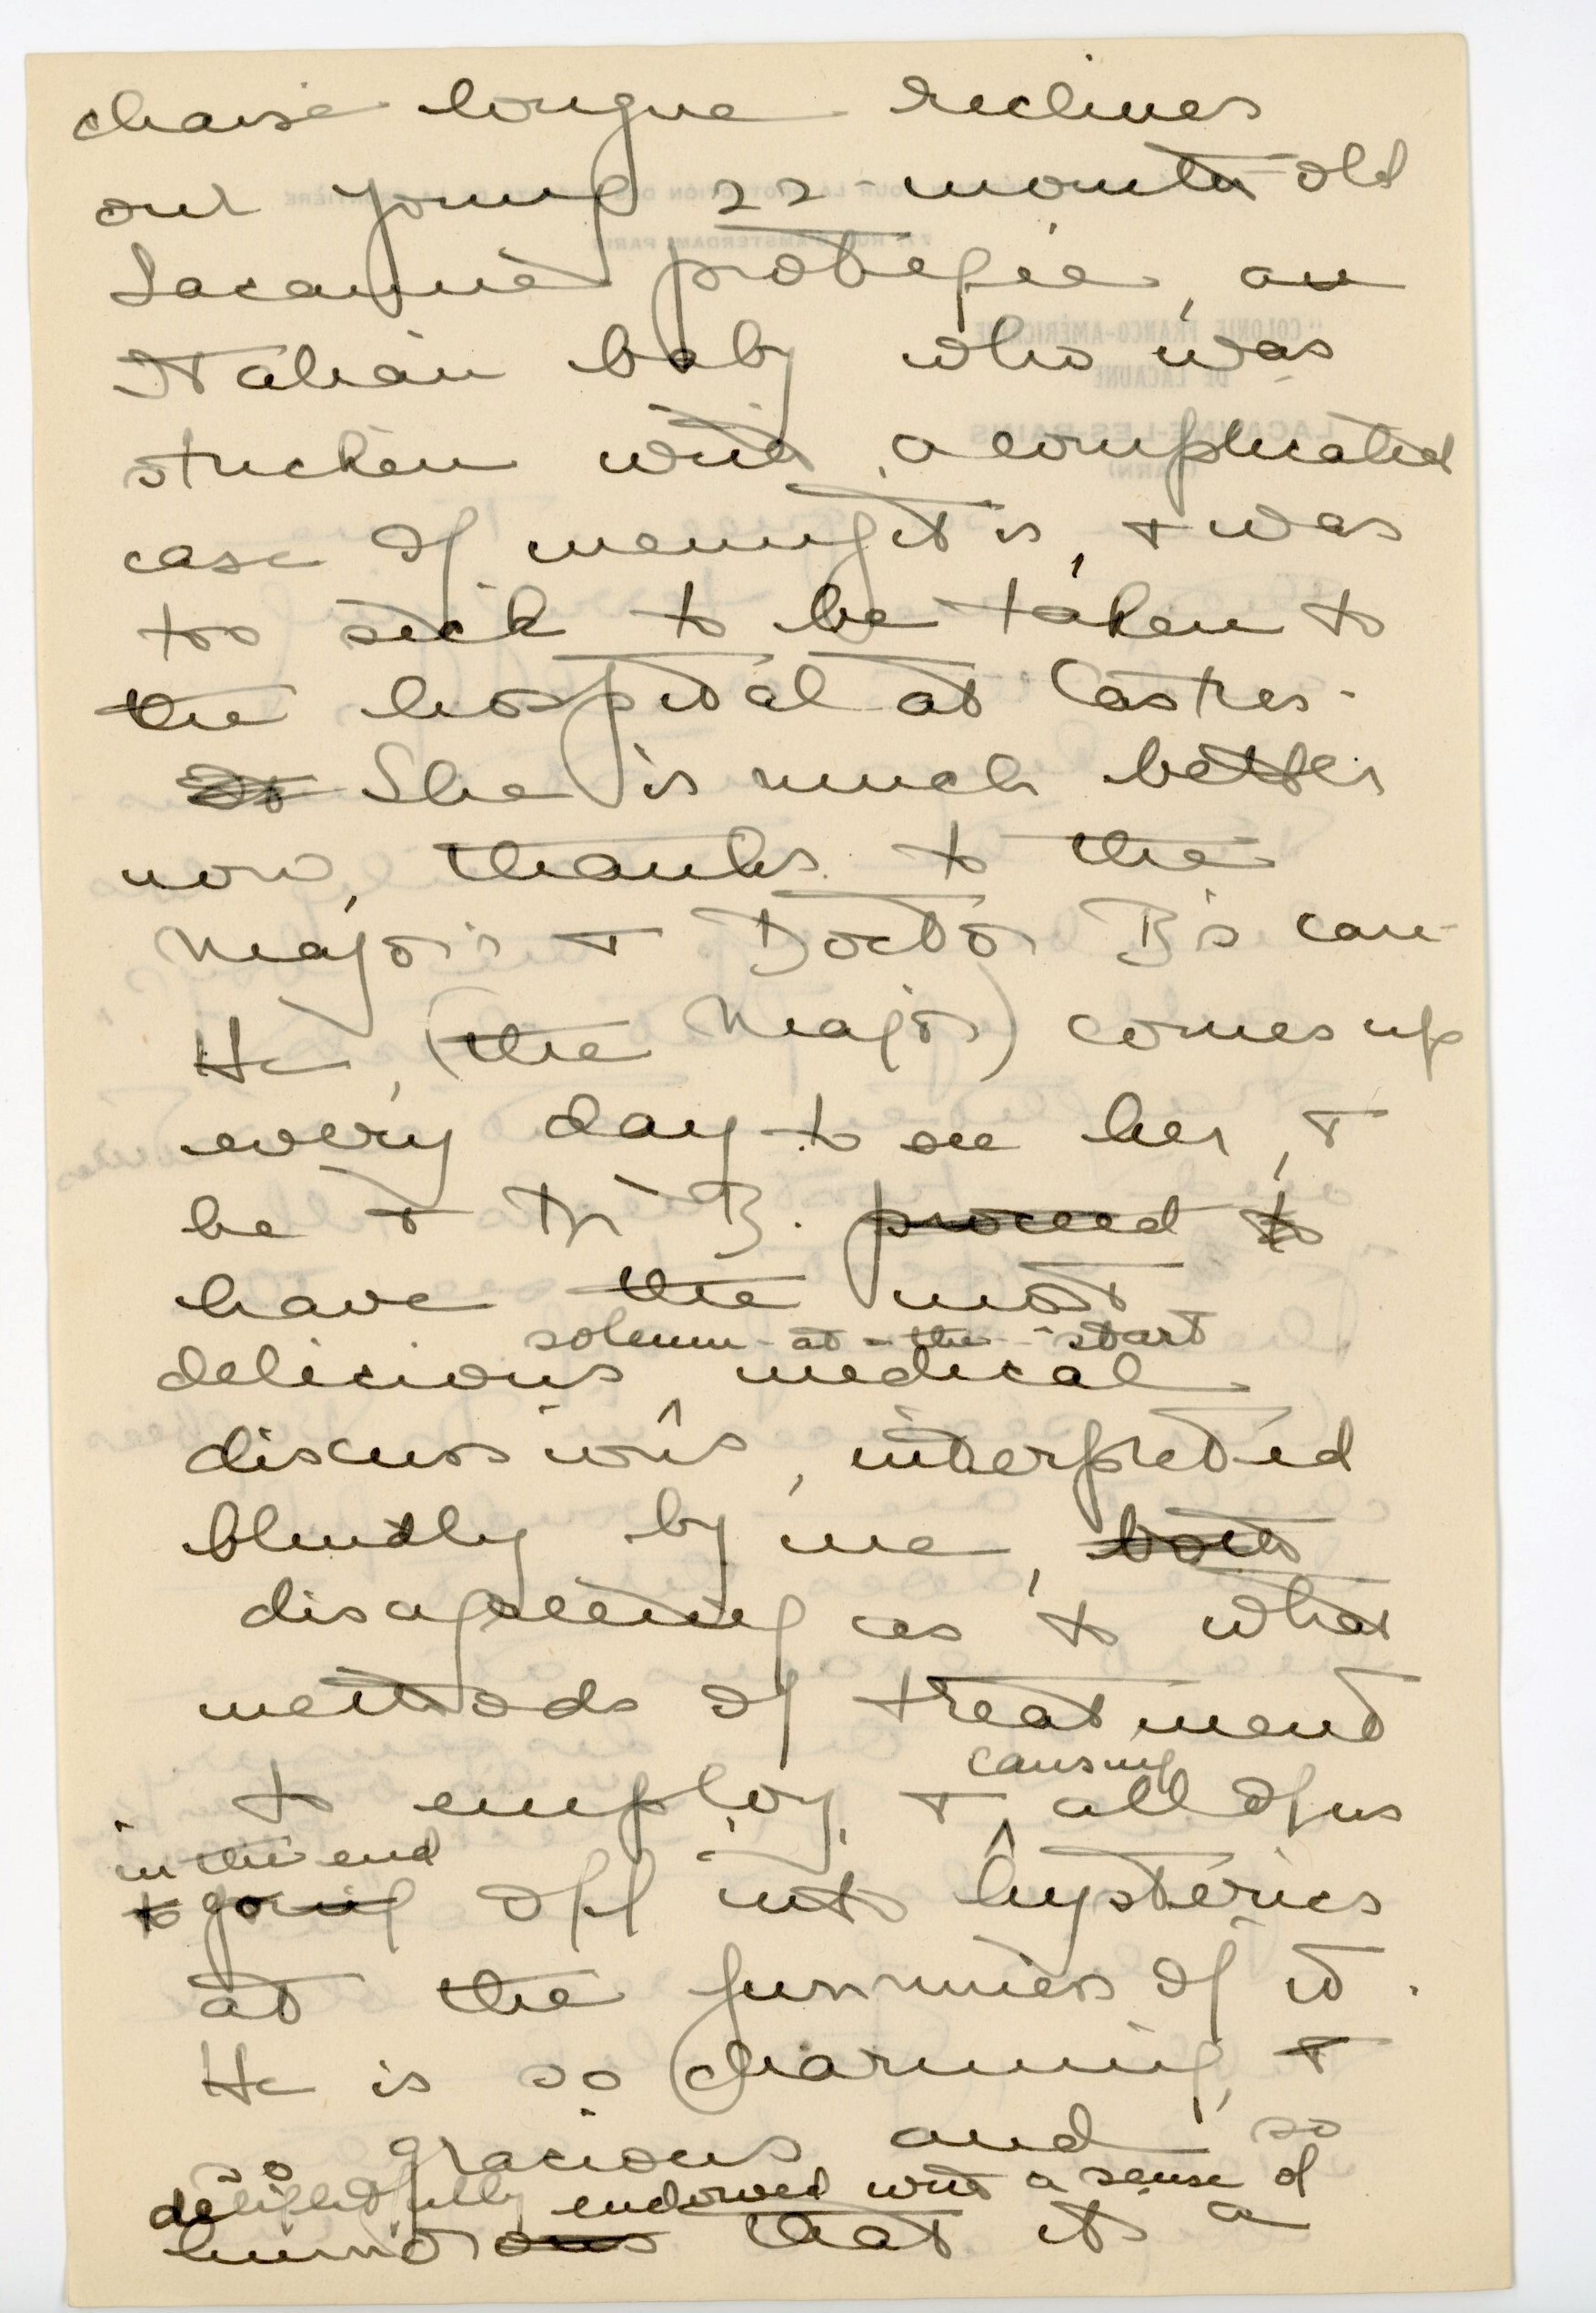 chaise longue reclines
our young 22-month old
Lacaunie protegée, an
Italian baby who was
stricken with a complicated
case of meningitis, + was
too sick to be taken to
the hospital at Castres.
She is much better
now, thanks to the
Major's + Doctor B's care.
He, (the Major) comes up
every day to see her, +
he + Dr B. proceed to
have the most
solemn-at-the-start
delicious medical
discussions, interpreted
blindly by me, both
disagreeing as to what
methods of treatment
causing
to employ, + all of us
in the end
to going off into hysterics
at the funniness of it.
He is so charming, +
so gracious and so
delightfully endowed with a sense of
humorous that it's a